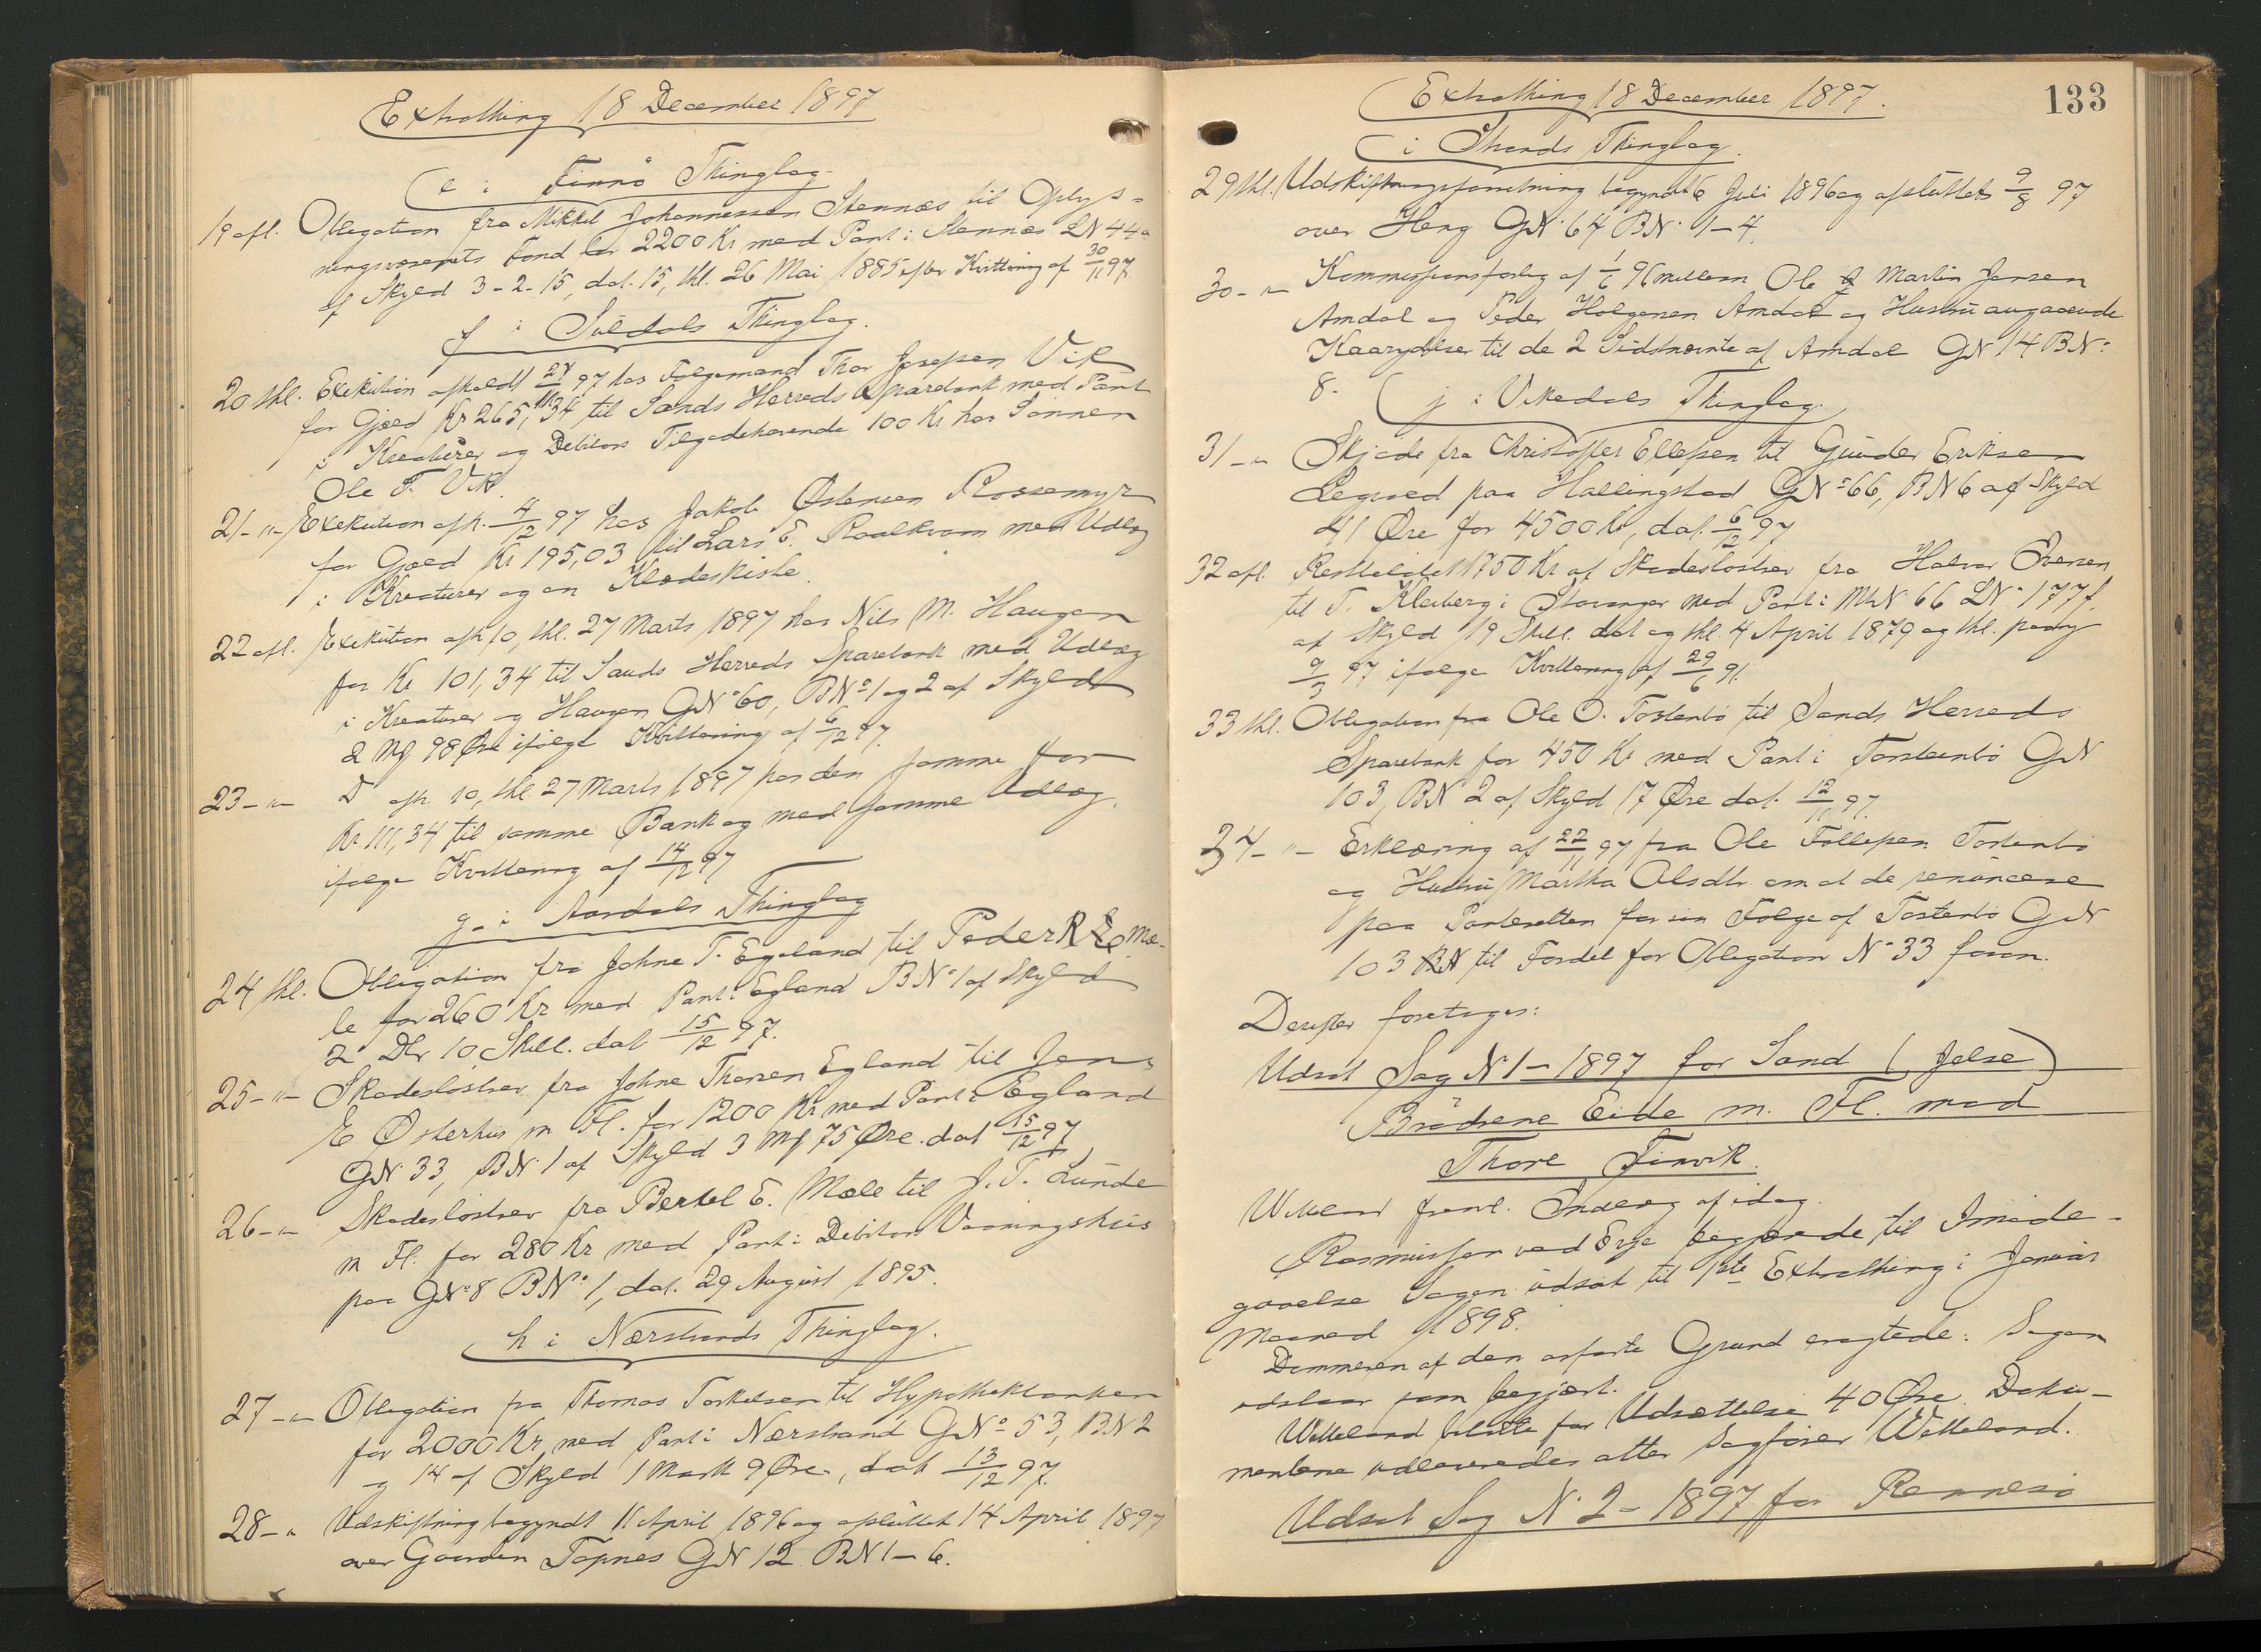 Extrathing 18 December 1897
e i Finnø Thinglag.
19 afl. Obligation fra Mikkel Johannessen Stennæs til Oplys-
ningsvæsenets fond for 2200 Kr med Pant i Stennæs LN 44a
af Skyld 3-2-15, dat. 15, thl. 26 Mai 1885 efter Kvittering af 30/11 97.
f i Suldals Thinglag.
20 thl. Exekution afholdt 24/11 97 hos Følgemand Thor Josefsen Vik
for Gjæld Kr 265,34 til Sands Herreds Sparebank med Pant
i Kreaturer og Debitors Tilgodehavende 100 Kr hos Sønnen
Ole T. Vik.
21 -"- Exekution afh. 4/12 97 hos Jakob Østensen Rossemyr
for Gjæld Kr 195,03 til Lars E. Roalkvam med Udlæg
i Kreaturer og en Klædeskiste.
22 afl. Exekution afh 10, thl. 27 Marts 1897 hos Nils M. Haugen
for Kr 101,34 til Sands Herreds Sparebank med Udlæg
i Kreaturer og Haugen GNo 60, BNo 1 og 2 af Skyld
2 Mk 98 Øre ifølge Kvittering af 6/12 97.
23 -"- Do afh. 10, thl 27 Marts 1897 hos den samme for
Kr 111,34 til samme Bank og med samme Udlæg.
ifølge Kvittering af 14/12 97
g. i Aardals Thinglag
24 thl. Obligation fra Johne T. Egeland til Peder R Mæ-
le for 260 Kr med Pant i Egland BNo 1 af Skyld
2 Dlr 10 Skill. dat 15/12 97.
25 -"- Skadesløsbrev fra Johne Thorsen Egland til Jens
E Østerhus m Fl. for 1200 Kr med Pant i Egland
GN 33, BN 1 af Skyld 3 Mk 75 Øre. dat 15/12 97
26 -"- Skadesløsbrev fra Bertel E. Mæle til J. T. Lunde
m Fl. for 280 Kr med Pant i Debitors Vaaningshus
paa GNo 8 BNo 1, dat. 29 August 1895.
h i Nærstrands Thinglag.
27 -"- Obligation fra Thomas Torkelsen til Hypothekbanken
for 2000 Kr med Pant i Nærstrand GNo 53, BN 2
og 14 af Skyld 1 Mark 9 Øre, dat 13/12 97.
28 -" Udskiftning begyndt 11 April 1896 og afsluttet 14 April 1897
over Gaarden Topnes GN 12 BN 1-6.
Extrathing 18 December 1897. 133
i Strands Thinglag.
29 thl. Udskiftningsforretning begyndt 6 Juli 1896 og afsluttet 9/8 97
over Heng GN. 64 BN. 1-4.
30 -"- Kommissionsforlig af 1/6 96 mellem Ole Martin Jensen
Amdal og Peder Holgersen Amdal og Hustru angaaende
Kaarydelser til de 2 Sidstnævnte af Amdal GN 14 BNo
8.
j i Vikedals Thinglag.
31 -"- Skjøde fra Christoffer Ellefsen til Gunder Eriksen
Legreid paa Hallingstad GNo 66, BN 6 af Skyld
41 Øre for 4500 Kr, dat. 6/12 97
32 afl. Restbeløbet 1750 Kr af Skadesløsbrev fra Halvor Iversen
til T. Kleiberg i Stavanger med Pant i MNo 66 LNo 177f.
af Skyld 19 Skill. dat og thl. 4 April 1879 og thl. paany
9/3 97 ifølge Kvittering af 29/6 91.
33 thl. Obligation fra Ole O. Tostenbø til Sands Herreds
Sparebank for 450 Kr med Pant i Torsteinbø GN
103, BN 2 af Skyld 17 Øre dat. 12/11 97.
34 -"- Erklæring af 22/11 97 fra Ole Tollefsen Tostenbø
og Hustru Martha Olsdtr. om at de renuncere
paa Panteretten for sin Følge af Tostenbø GN
103 til Fordel for Obligation No 33 foran.
Derefter foretoges:
Udsat Sag N 1 - 1897 for Sand (Jelse)
Brødrene Eide m. Fl. mod
Thore Finvik.
Wetteland freml. Indlæg af idag.
Rasmussen ved Erge begjærede til Imøde-
gaaelse Sagen udsat til 1ste Extrathing i Januar
Maaned 1898.
Dommeren af den anførte Grund eragtede: Sagen
udstaar som begjært.
Wetteland betalte for Udsættelse 40 Øre. Doku-
menterne udleveredes atter Sagfører Wetteland.
Udsat Sag No 2 - 1897 for Rennesø